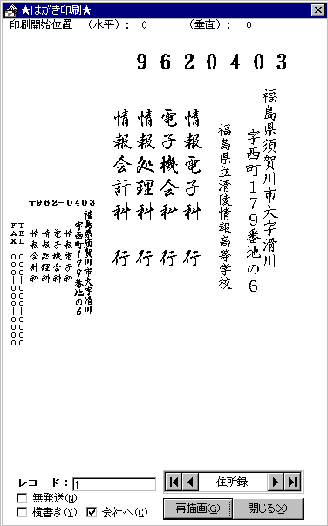 ★はがき印刷★
印刷開始位置 （水平）： 0 （垂直）： 0
9620403
福島県須賀川市大字滑川
字西町179番地の6
福島県立清陵情報高等学校
情報電子科 行
電子機会科 行
情報処理科 行
情報会計科 行
〒962-0403
福島県須賀川市大字滑川
字西町179番地の6
情報電子科
電子機会科
情報処理科
情報会計科
レコード：1
住所録
無発送(N)
横書き(Y) 会社へ(C)
再描画(G) 閉じる(Z)